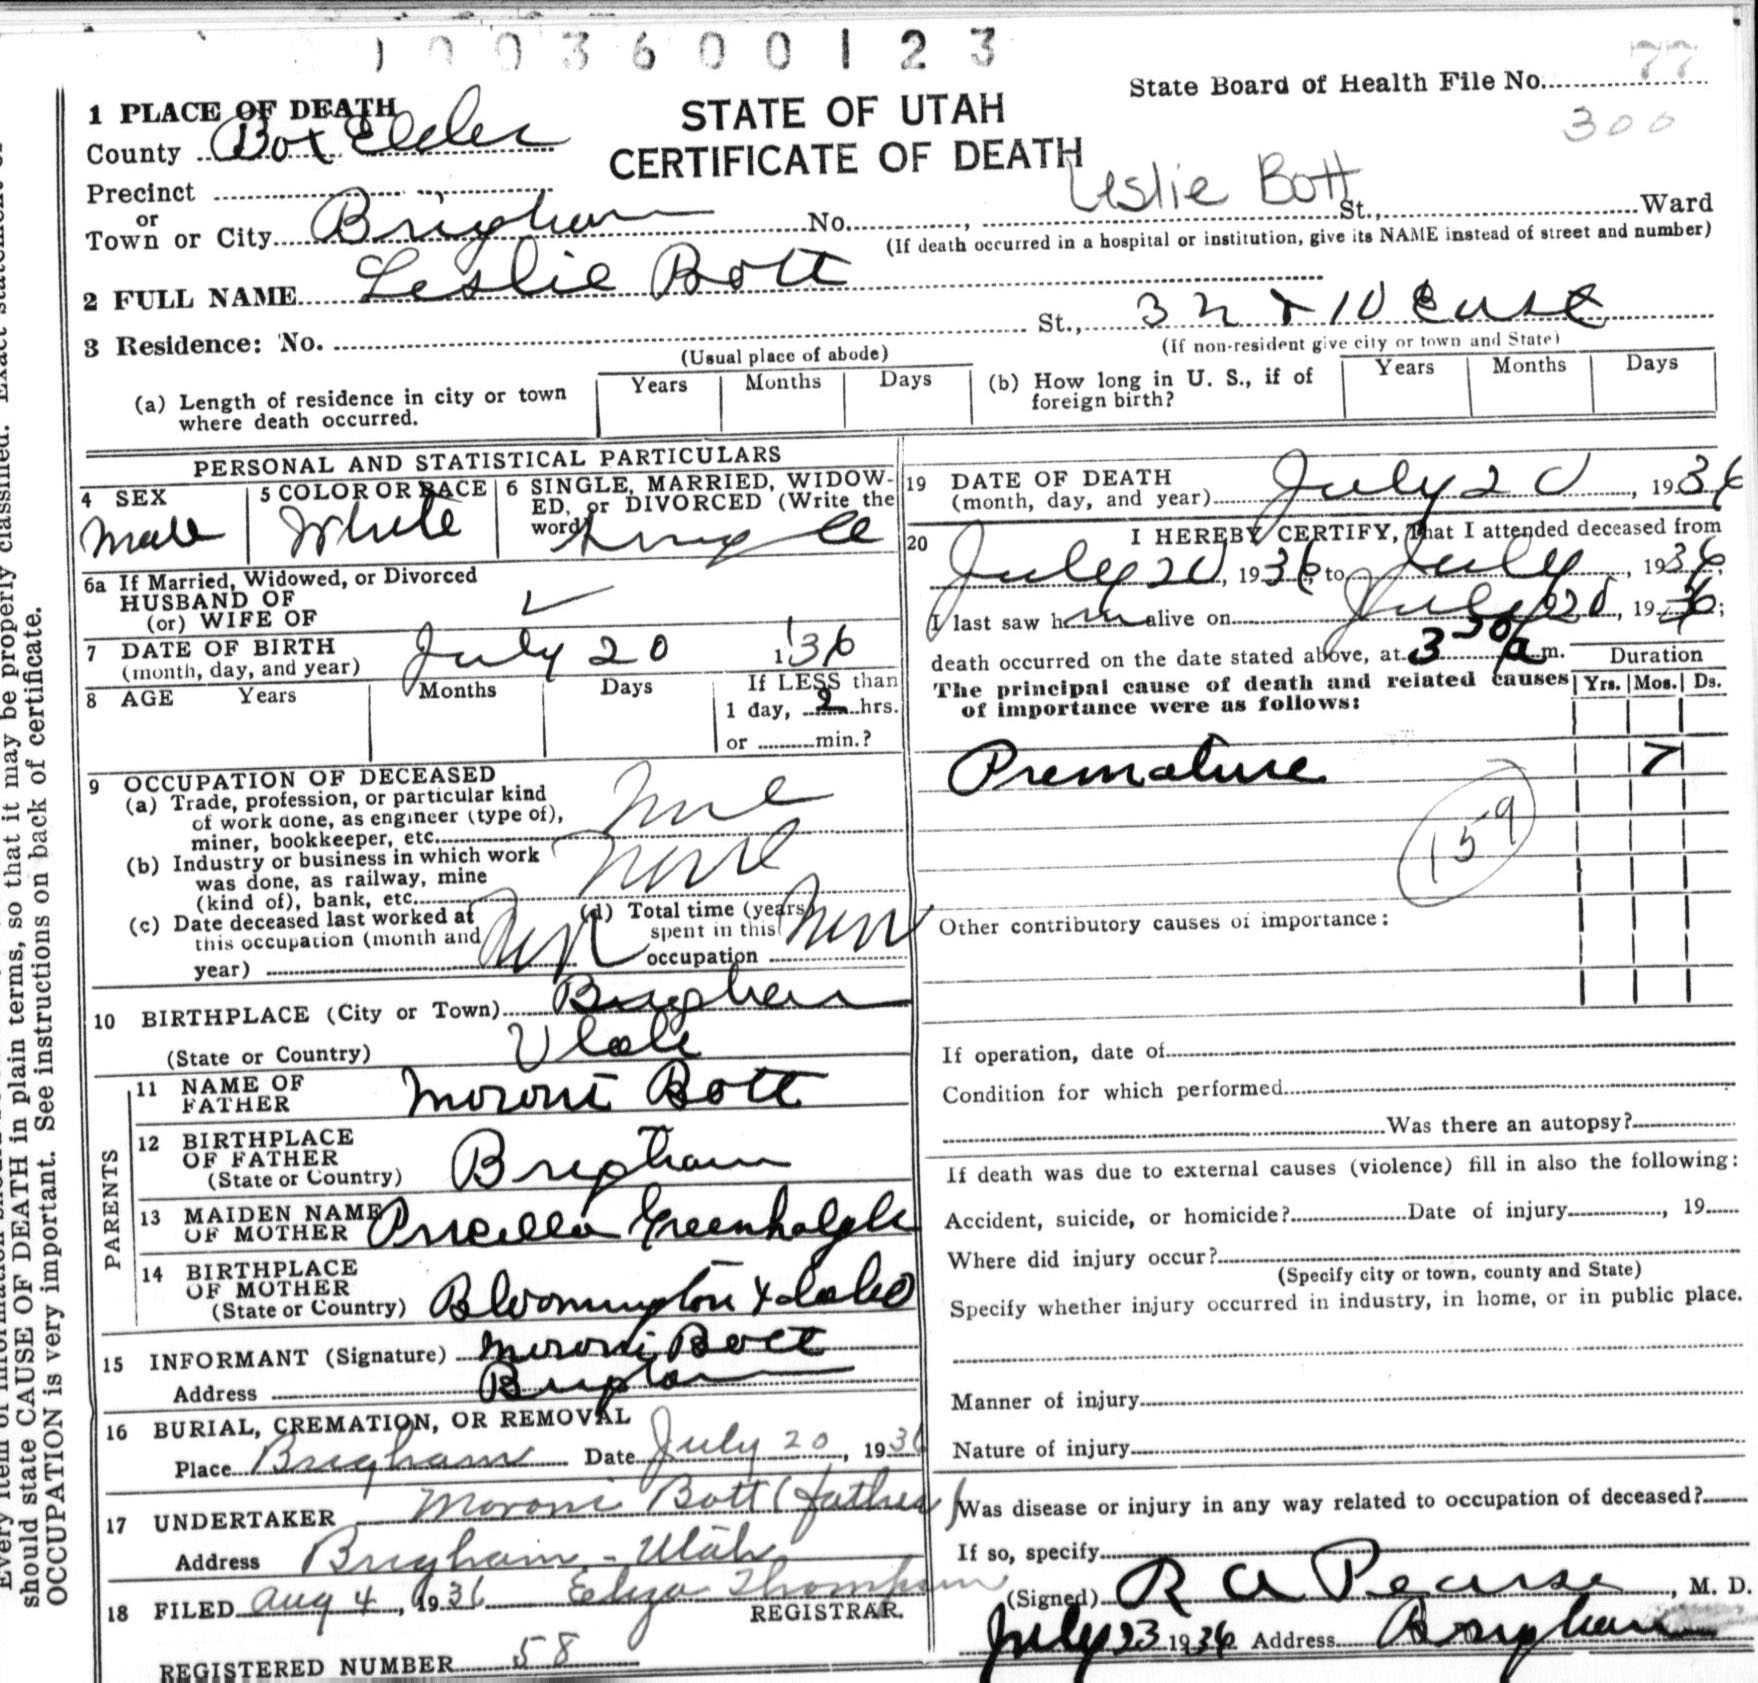 1003600123
77
State Board of Health File No.
300
1 PLACE OF DEATH
STATE OF UTAH
County Box Elder
CERTIFICATE OF DEATH
Precinct
Leslie Bott
or
Town or City Brigham No. , St., Ward
(If death occurred in a hospital or institution, give its NAME instead of street and number)
2 FULL NAME Leslie Bott
3 Residence: No. St., 3 N 10 East
(Usual place of abode) (If non-resident give city or town and State)
(a) Length of residence in city or town where death occurred. Years Months Days
(b) How long in U. S., if of foreign birth? Years Months Days
PERSONAL AND STATISTICAL PARTICULARS
4 SEX Male
5 COLOR OR RACE White
6 SINGLE, MARRIED, WIDOW-
ED, or DIVORCED (Write the
word) Single
6a If Married, Widowed, or Divorced
HUSBAND OF
(or) WIFE OF
7 DATE OF BIRTH July 20 136
(month, day, and year)
8 AGE Years Months Days If LESS than
1 day, 2 hrs.
or min.?
9 OCCUPATION OF DECEASED
(a) Trade, profession, or particular kind
of work done, as engineer (type of),
miner, bookkeeper, etc. None
(b) Industry or business in which work
was done, as railway, mine
(kind of), bank, etc. None
(c) Date deceased last worked at
this occupation (month and
year)
(d) Total time (years)
spent in this
occupation
10 BIRTHPLACE (City or Town) Brigham
(State or Country) Utah
PARENTS
11 NAME OF
FATHER Moroni Bott
12 BIRTHPLACE
OF FATHER Brigham
(State or Country)
13 MAIDEN NAME
OF MOTHER Priscella Greenhalgh
14 BIRTHPLACE
OF MOTHER
(State or Country) Bloomington Idaho
15 INFORMANT (Signature) Moroni Bott
Address Brigham
16 BURIAL, CREMATION, OR REMOVAL
Place Brigham Date July 20, 1936
17 UNDERTAKER Moroni Bott (father)
Address Brigham - Utah
18 FILED Aug 4, 1936 Eliza Thompson
REGISTRAR.
REGISTERED NUMBER 58
19 DATE OF DEATH
(month, day, and year) July 20, 1936
20 I HEREBY CERTIFY, That I attended deceased from
July 20, 1936, to July, 1936,
I last saw him alive on July 20, 1936;
death occurred on the date stated above, at 3 30 a m.
Duration
The principal cause of death and related causes
of importance were as follows:
Yrs. Mos. Ds.
Premature 7
159
Other contributory causes of importance:
If operation, date of
Condition for which performed
Was there an autopsy?
If death was due to external causes (violence) fill in also the following:
Accident, suicide, or homicide? Date of injury , 19
Where did injury occur?
(Specify city or town, county and State)
Specify whether injury occurred in industry, in home, or in public place.
Manner of injury
Nature of injury
Was disease or injury in any way related to occupation of deceased?
If so, specify
(Signed) R A Pearse, M. D.
July 23 1936 Address Brigham
should state CAUSE OF DEATH in plain terms, so that it may be properly classified. Exact statement of
OCCUPATION is very important. See instructions on back of certificate.